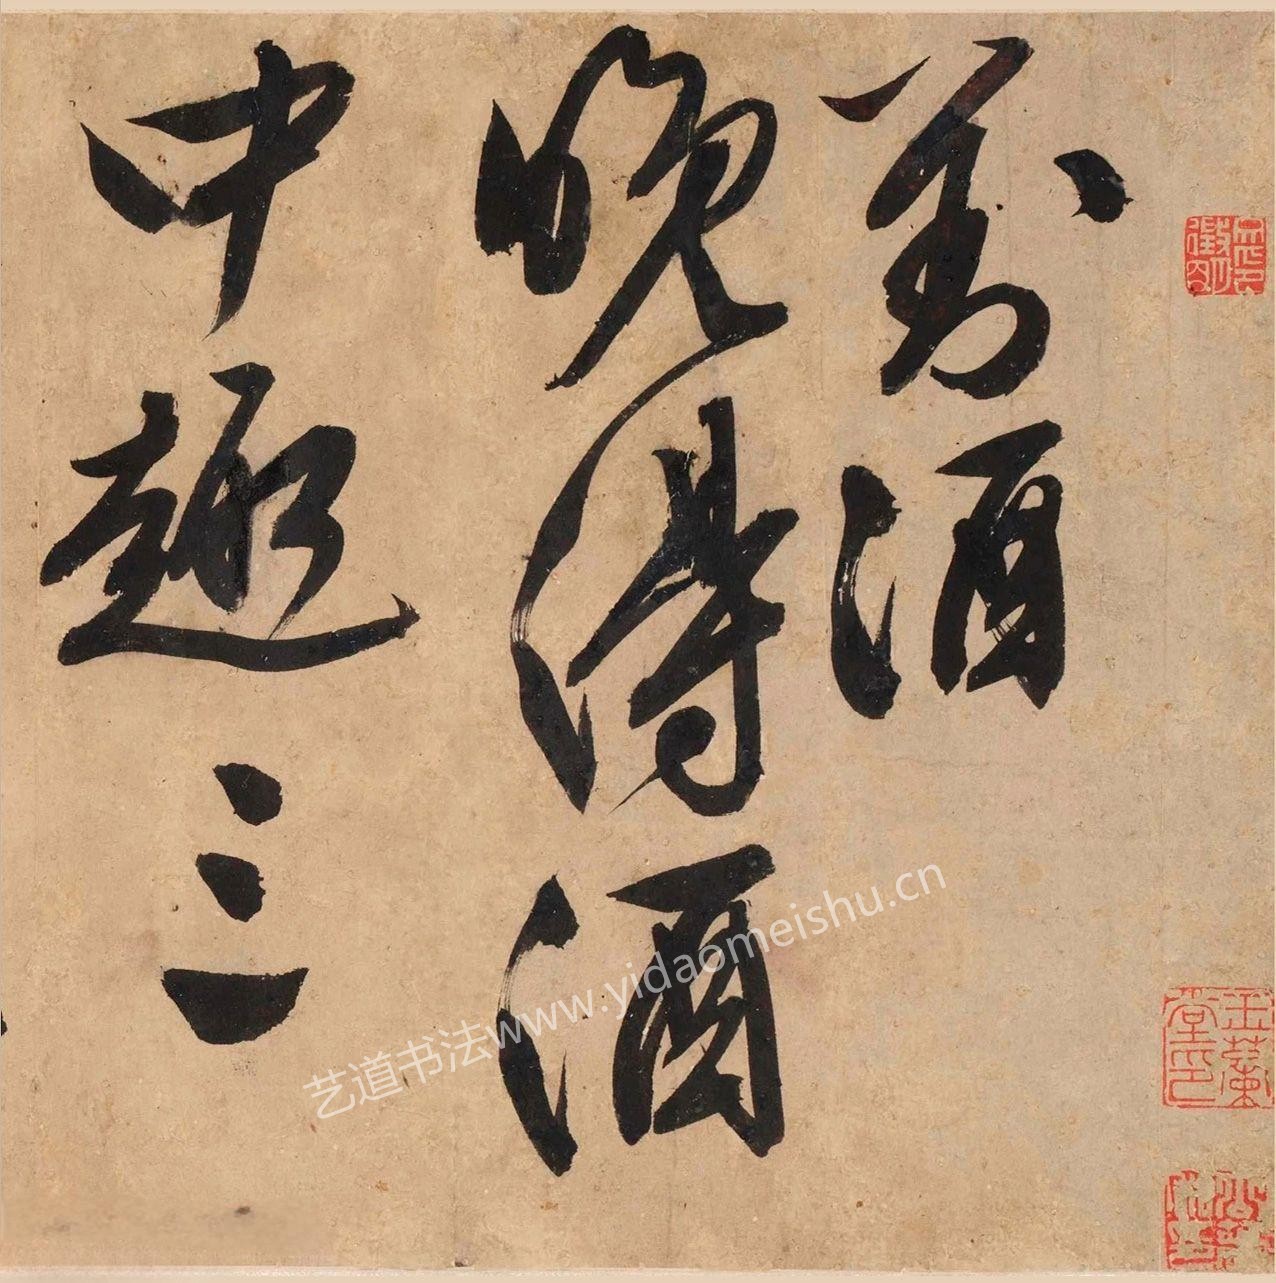 對酒
晚得酒
中趣三
艺道书法www.yidaomeishu.cn